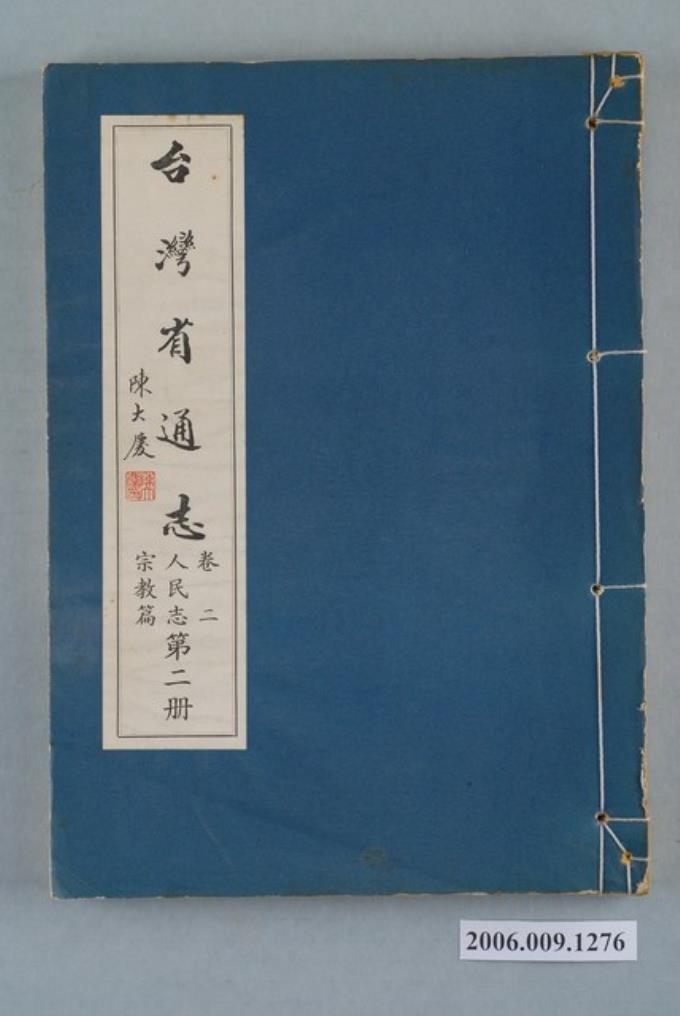 台灣省通志
卷二
人民志第二册
宗教篇
陳大慶
2006.009.1276